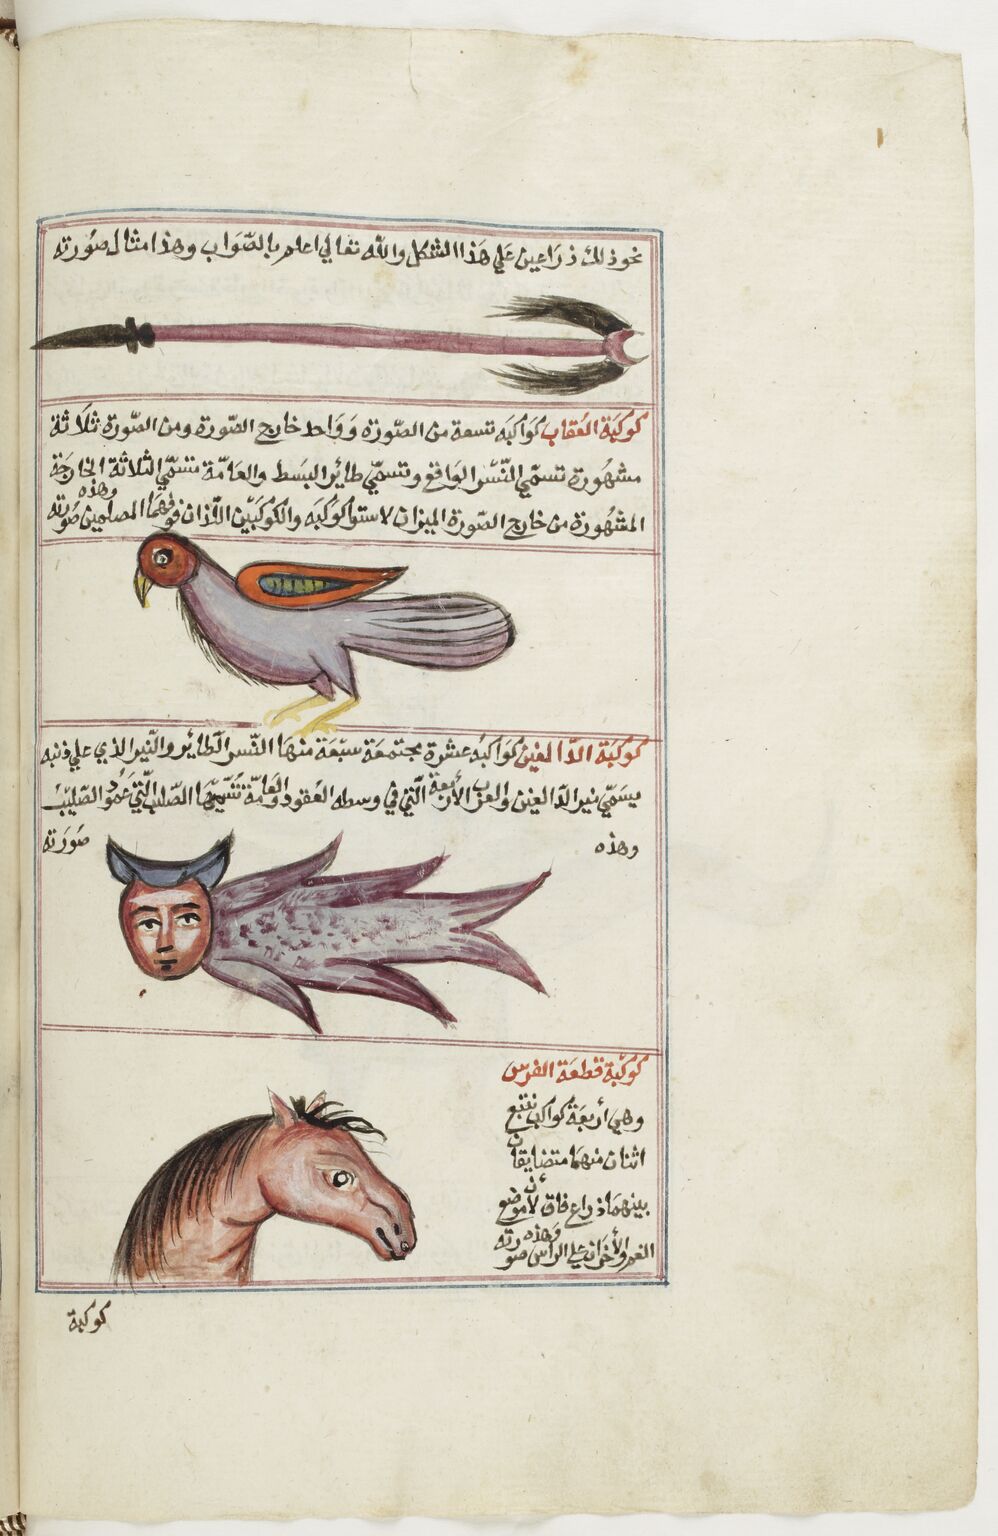 نحو ذلك ذراعين على هذا الشكل والله تعالى اعلم بالصّواب وهذا مثال صورته
كوكبة العقاب كواكبه تسعة من الصّورة وواحد خارج الصّورة ومن الصّورة ثلاثة
مشهورة تسمّى النّسر الواقع وتسمّى طاير البسط والعامّة تسمّى الثلاثة الخارجة
المشهورة من خارج الصّورة الميزان لاستوا كوكبه والكوكبين اللّذان فوقهما وهذه صورته
كوكبة الدّالفين كواكبه عشرة مجتمعة سبعة منها النّسر الطّاير والنّير الذي على ذنبه
يسمّى نير الدّالفين والعرب الأربعة الّتي في وسطه العقود والعامّة تسمّيها الصّليب الّتي عمود الصّليب
وهذه صورته
كوكبة قطعة الفرس
وهي أربعة كواكب تتبع
اثنان منهما متضايقان
بينهما ذراع لأن موضع
الفم والأخران على الراس وهذه صورته
كوكبة